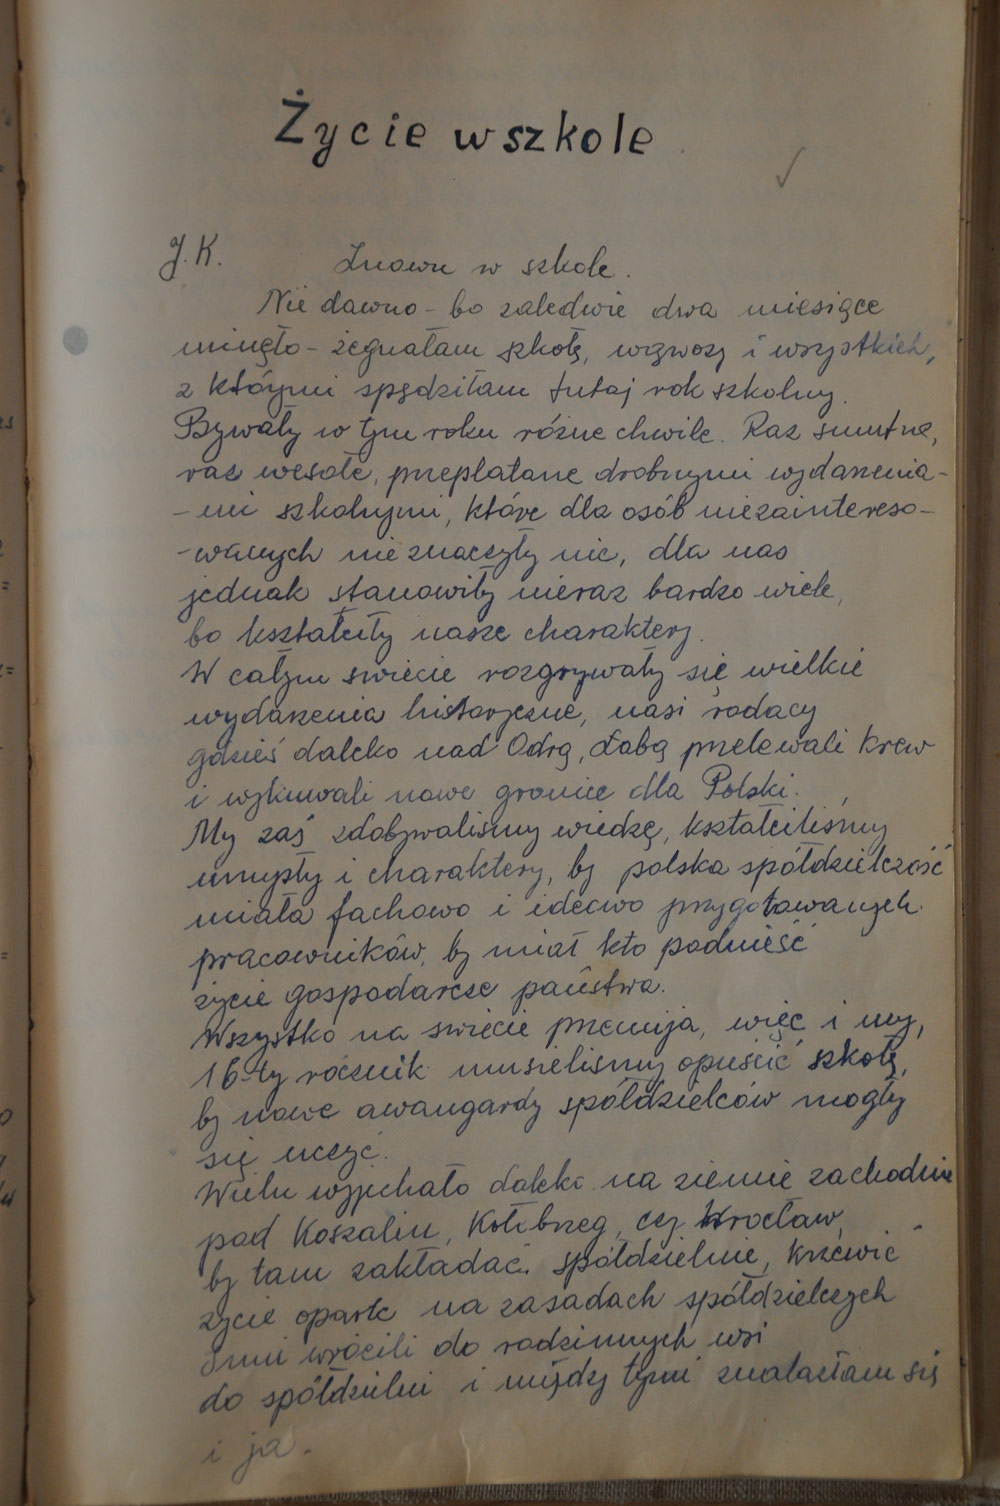 Życie w szkole
J. K. Znowu w szkole.
Nie dawno - bo zaledwie dwa miesiące
minęło - żegnałam szkołę, wąwozy i wszystkich,
z którymi spędziłam tutaj rok szkolny.
Bywały w tym roku różne chwile. Raz smutne,
raz wesołe, przeplatane drobnymi wydarzenia-
-mi szkolnymi, które dla osób niezaintereso-
-wanych nie znaczyły nic, dla nas
jednak stanowiły nieraz bardzo wiele,
bo kształciły nasze charaktery.
W całym świecie rozgrywały się wielkie
wydarzenia historyczne, nasi rodacy
gdzieś daleko nad Odrą, Łabą przelewali krew
i wykuwali nowe granice dla Polski.
My zaś zdobywaliśmy wiedzę, kształciliśmy
umysły i charaktery, by polska spółdzielczość
miała fachowo i ideowo przygotowanych
pracowników, by miał kto podnieść
życie gospodarcze państwa.
Wszystko na świecie przemija, więc i my,
16-ty rocznik musieliśmy opuścić szkołę,
by nowe awangardy spółdzielców mogły
się uczyć.
Wielu wyjechało daleko na ziemie zachodnie
pod Koszalin, Kołobrzeg, czy Wrocław,
by tam zakładać spółdzielnie, krzewić
życie oparte na zasadach spółdzielczych
Inni wrócili do rodzinnych wsi
do spółdzielni i między tymi znalazłam się
i ja.